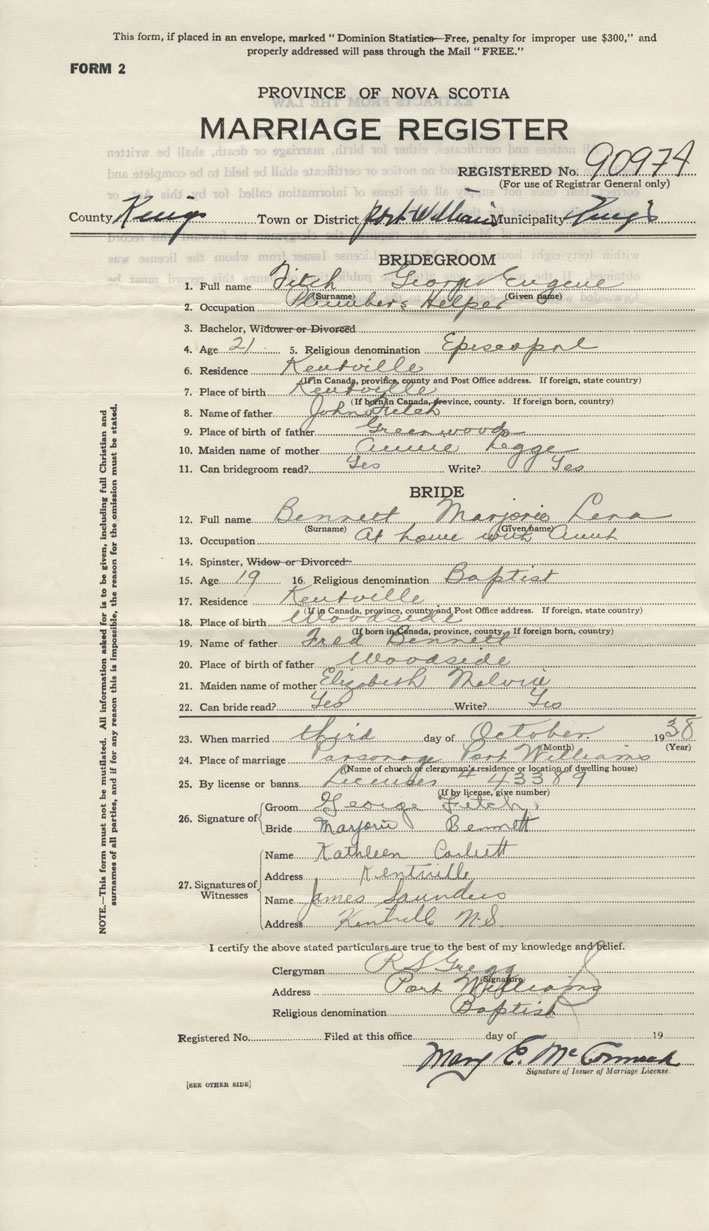 This form, if placed in an envelope, marked "Dominion Statistics—Free, penalty for improper use $300," and
properly addressed will pass through the Mail "FREE."
FORM 2
PROVINCE OF NOVA SCOTIA
MARRIAGE REGISTER
REGISTERED No. 90974
(For use of Registrar General only)
County Kings Town or District Port Williams Municipality Kings
BRIDEGROOM
1. Full name Fitch George Eugene
(Surname) (Given name)
2. Occupation Plumbers Helper
3. Bachelor, Widower or Divorced
4. Age 21 5. Religious denomination Episcopal
6. Residence Kentville
(If in Canada, province, county and Post Office address. If foreign, state country)
7. Place of birth Kentville
(If born in Canada, province, county. If foreign born, country)
8. Name of father John Fitch
9. Place of birth of father Greenwood
10. Maiden name of mother Annie Legge
11. Can bridegroom read? Yes Write? Yes
BRIDE
12. Full name Bennett Marjorie Lena
(Surname) (Given name)
13. Occupation At home with Aunt
14. Spinster, Widow or Divorced
15. Age 19 16. Religious denomination Baptist
17. Residence Kentville
(If in Canada, province, county and Post Office address. If foreign, state country)
18. Place of birth Woodside
(If born in Canada, province, county. If foreign born, country)
19. Name of father Fred Bennett
20. Place of birth of father Woodside
21. Maiden name of mother Elizabeth Melvin
22. Can bride read? Yes Write? Yes
23. When married third day of October 1938
(Month) (Year)
24. Place of marriage Parsonage Port Williams
(Name of church or clergyman's residence or location of dwelling house)
25. By license or banns Licenses # 43389
(If by license, give number)
26. Signature of Groom George Fitch
Bride Marjorie Bennett
27. Signatures of Witnesses
Name Kathleen Corbett
Address Kentville
Name James Saunders
Address Kentville N.S
I certify the above stated particulars are true to the best of my knowledge and belief.
Clergyman R S Gregg
Signature
Address Port Williams
Religious denomination Baptist
Registered No. Filed at this office day of 19
Mary E. McCormack
Signature of Issuer of Marriage License
[SEE OTHER SIDE]
NOTE.—This form must not be mutilated. All information asked for is to be given, including full Christian and
surnames of all parties, and if for any reason this is impossible, the reason for the omission must be stated.